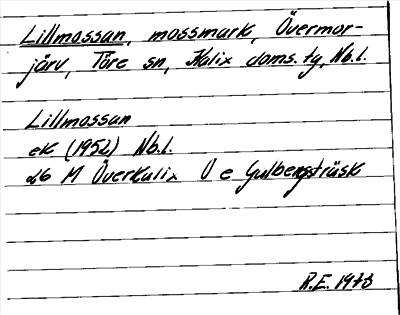 Lillmossan, mossmark, Övermor-
järv, Töre sn, Kalix doms. tg, Nb. l.
Lillmossan
ek (1952) Nb. l.
26 M Överkalix O e Gulbergsträsk
R.E. 1970